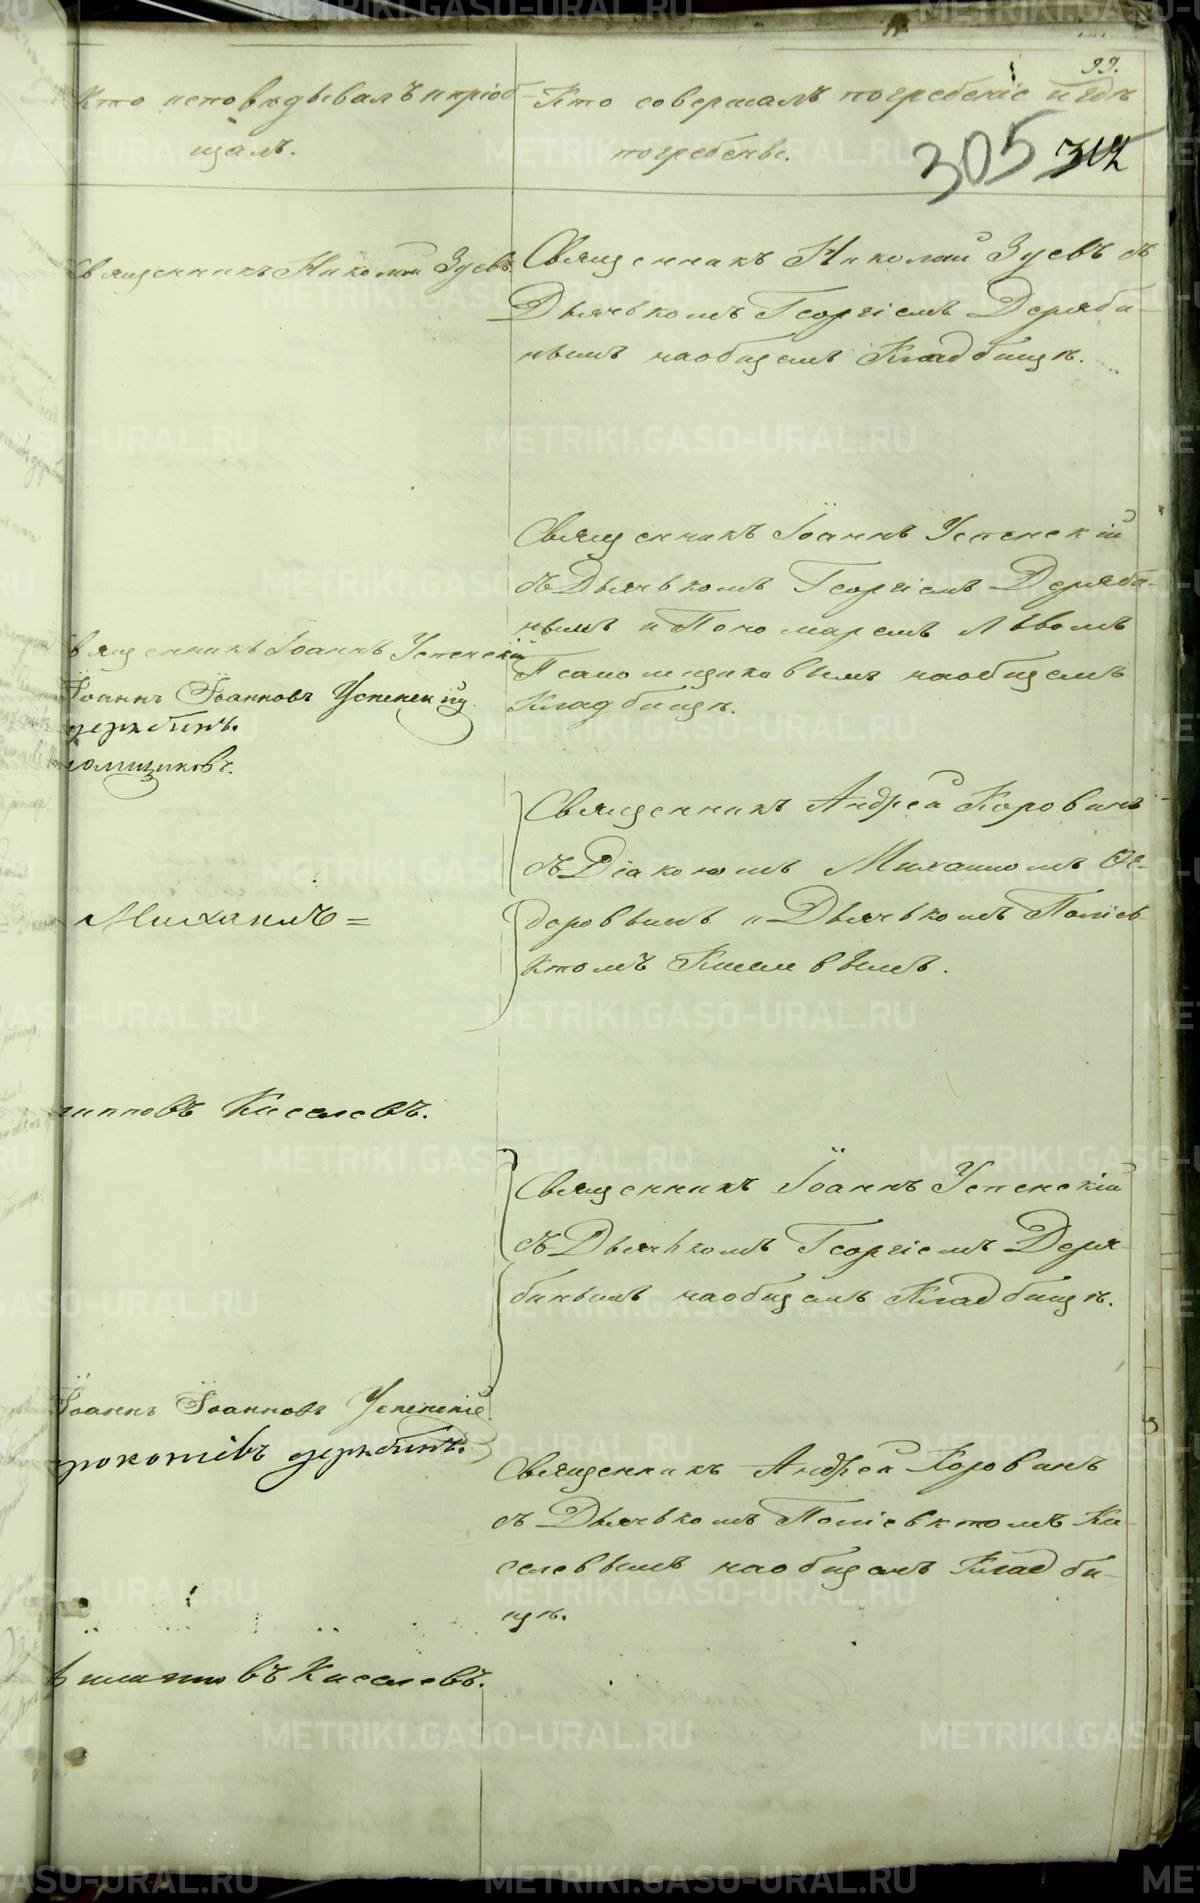 99.
305 312
Кто исповѣдывалъ и пріоб-
щалъ.
Кто совершалъ погребеніе и гдѣ
погребены.
Священникъ Николай Зуевъ
Священникъ Николай Зуевъ съ
Дьячькомъ Георгіемъ Деряби-
нымъ на общемъ Кладбищѣ.
Священникъ Іоаннъ Успенскій
съ Дьячькомъ Георгіемъ Деряби-
нымъ и Пономаремъ Львомъ
Псаломщиковымъ на общемъ
Кладбищѣ.
вященникъ Іоаннъ Успенскій
Іоаннъ Іоанновъ Успенскій
Дерябинъ.
омщиковъ.
Священникъ Андрей Коровинъ
съ Діакономъ Михаиломъ Ѳе-
доровымъ и Дьячькомъ Поліев
ктомъ Киселевымъ.
Михаилъ =
липповъ Киселевъ.
Священникъ Іоаннъ Успенскій
съ Дьячькомъ Георгіемъ Деря-
бинымъ на общемъ Кладбищѣ.
Іоаннъ Іоанновъ Успенскій
Прокопіевъ Дерябинъ.
Священникъ Андрей Коровинъ
съ Дьячькомъ Поліевктомъ Ки-
селевымъ на общемъ Кладби-
щѣ.
Филипповъ Киселевъ.
METRIKI.GASO-URAL.RU